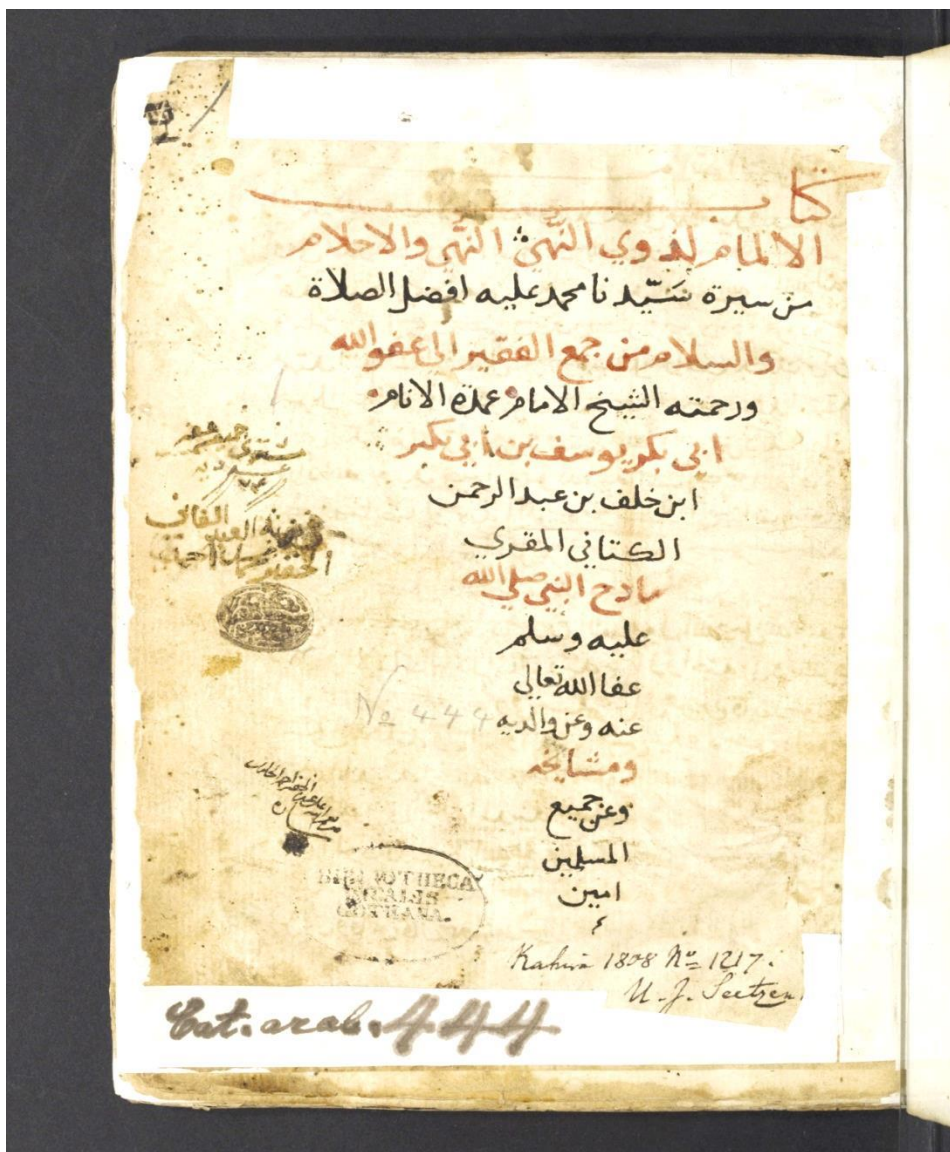 كتاب
الالمام لذوي النُّهى النُّهى والاحلام
من سيرة سَيّدنا محمد عليه افضل الصلاة
والسلام من جمع الفقير الى عفو الله
ورحمته الشيخ الامام عمدة الانام
ابي بكر يوسف بن أبي بكر
ابن خلف بن عبد الرحمن
الكتاني المقري
مادح النبي صلي الله
عليه وسلم
عفا الله تعالى
عنه وعن والديه
ومشايخه
وعن جميع
المسلمين
امين
№ 444
BIBLIOTHECA
DUCALIS
GOTHANA.
Kahira 1808 № 1217.
U. J. Seetzen
Cat. arab. 444